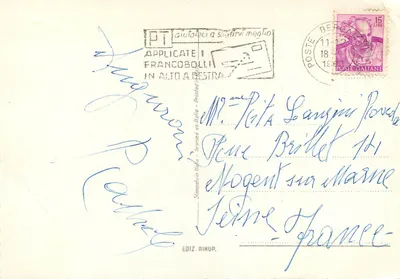 PT aiutateci a servirvi meglio
APPLICATE I
FRANCOBOLLI
IN ALTO A DESTRA
POSTE BER
11
18
15
POSTE ITALIANE
Auguroni
Rachele
Mme Rita Langini
Rue Brillet 14
Nogent sur Marne
Seine
France
EDIZ. RIKUP.